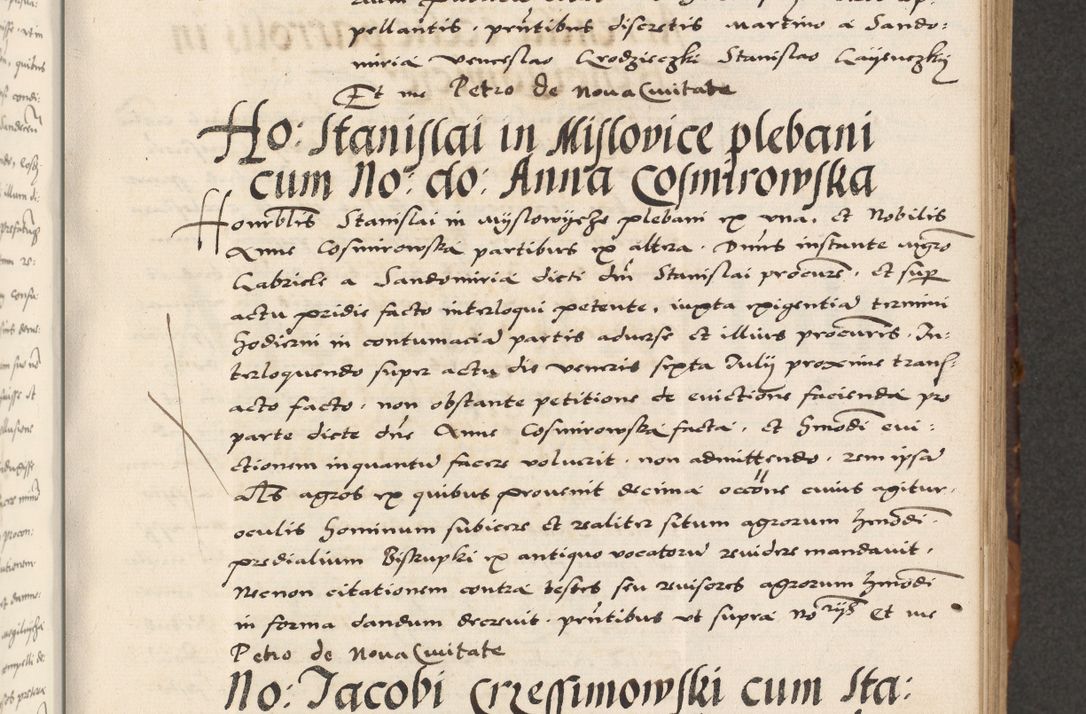 pellantis, pntibus discretis Martino a Sando-
miria Venceslao Grodzieczki Stanislao
Et me Petro de Nova Civitate
Ho: Stanislai in Mislovice plebani
cum No: do: Anna Cosmirowska
Honorblis Stanislai in Myslowycze plebani ex una, et Nobilis
Anne Cosmirowska partibus ex altera. Dnus instante mgro
Gabriele a Sandomiria dicti dni Stanislai procure, et super
actu pridie facto interloqui petente, iuxta exigentia termini
hodierni in contumacia partis adverse et illius procuris. In-
terloquendo super actu die veneris sexta Iulij proxime trans-
acto facto, non obstante petitione de evictione facienda pro
parte dicte dne Anne Cosmirowska facta, et hmodi evi-
ctionem inquantu facere voluerit, non admittendo, rem ipsa
als agros ex quibus provenit decima occone cuius agitur,
oculis hominum subicere et realiter situm agrorum hmodi,
predialium Biskupki ex antiquo vocatoru revidere mandavit,
Necnon citationem contra testes seu revisores agrorum hmodi
in forma dandum decrevit, pntibus ut supra Norijs Et me
Petro de Nova Civitate
No: Jacobi Crzessimowski cum Sta: